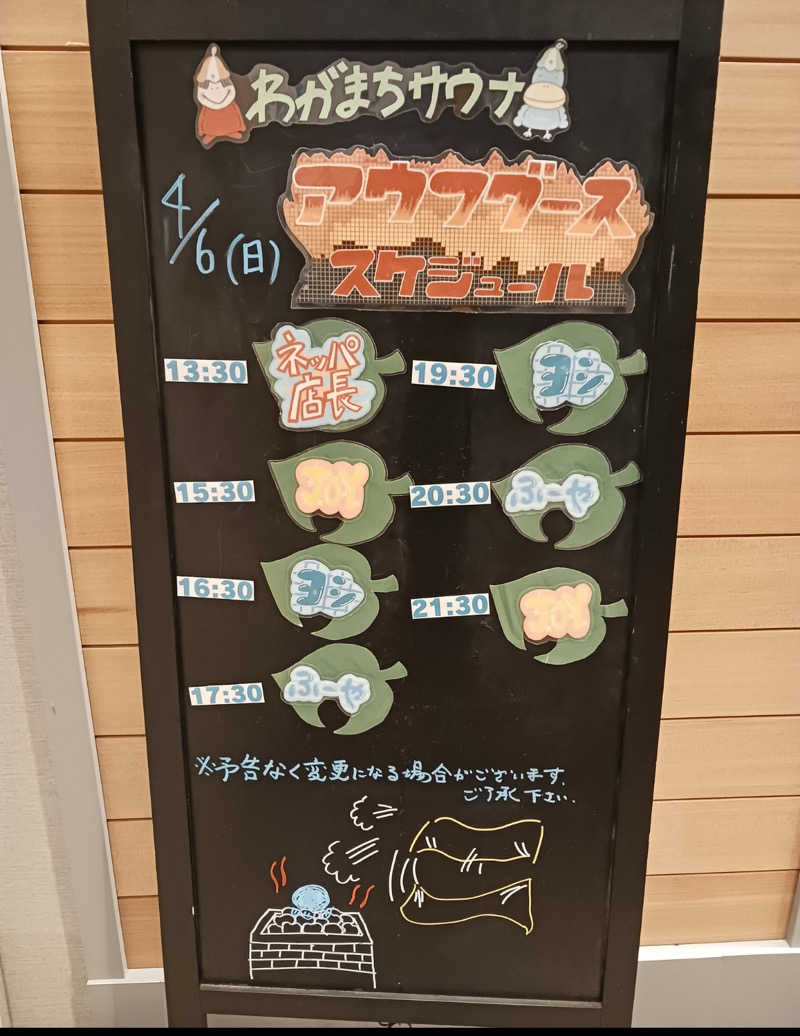 わがまちサウナ
アウフグース
スケジュール
4/6(日)
13:30 ネッパ店長
15:30 JOY
16:30 ヨシ
17:30 ふーや
19:30 ヨシ
20:30 ふーや
21:30 JOY
※予告なく変更になる場合がございます。
ご了承下さい.